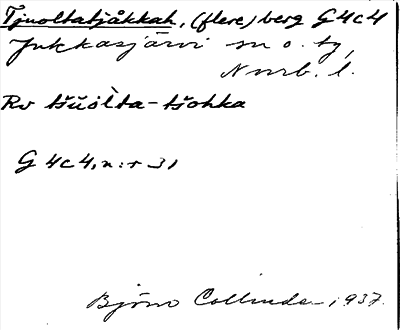 Tjuoltatjåkkah, (flere) berg G4c4
Jukkasjärvi sn o. tg,
Nmrb. l.
Rv tšŭòlta-tšohka
G 4c4, n:r 31
Björn Collinder 1937.